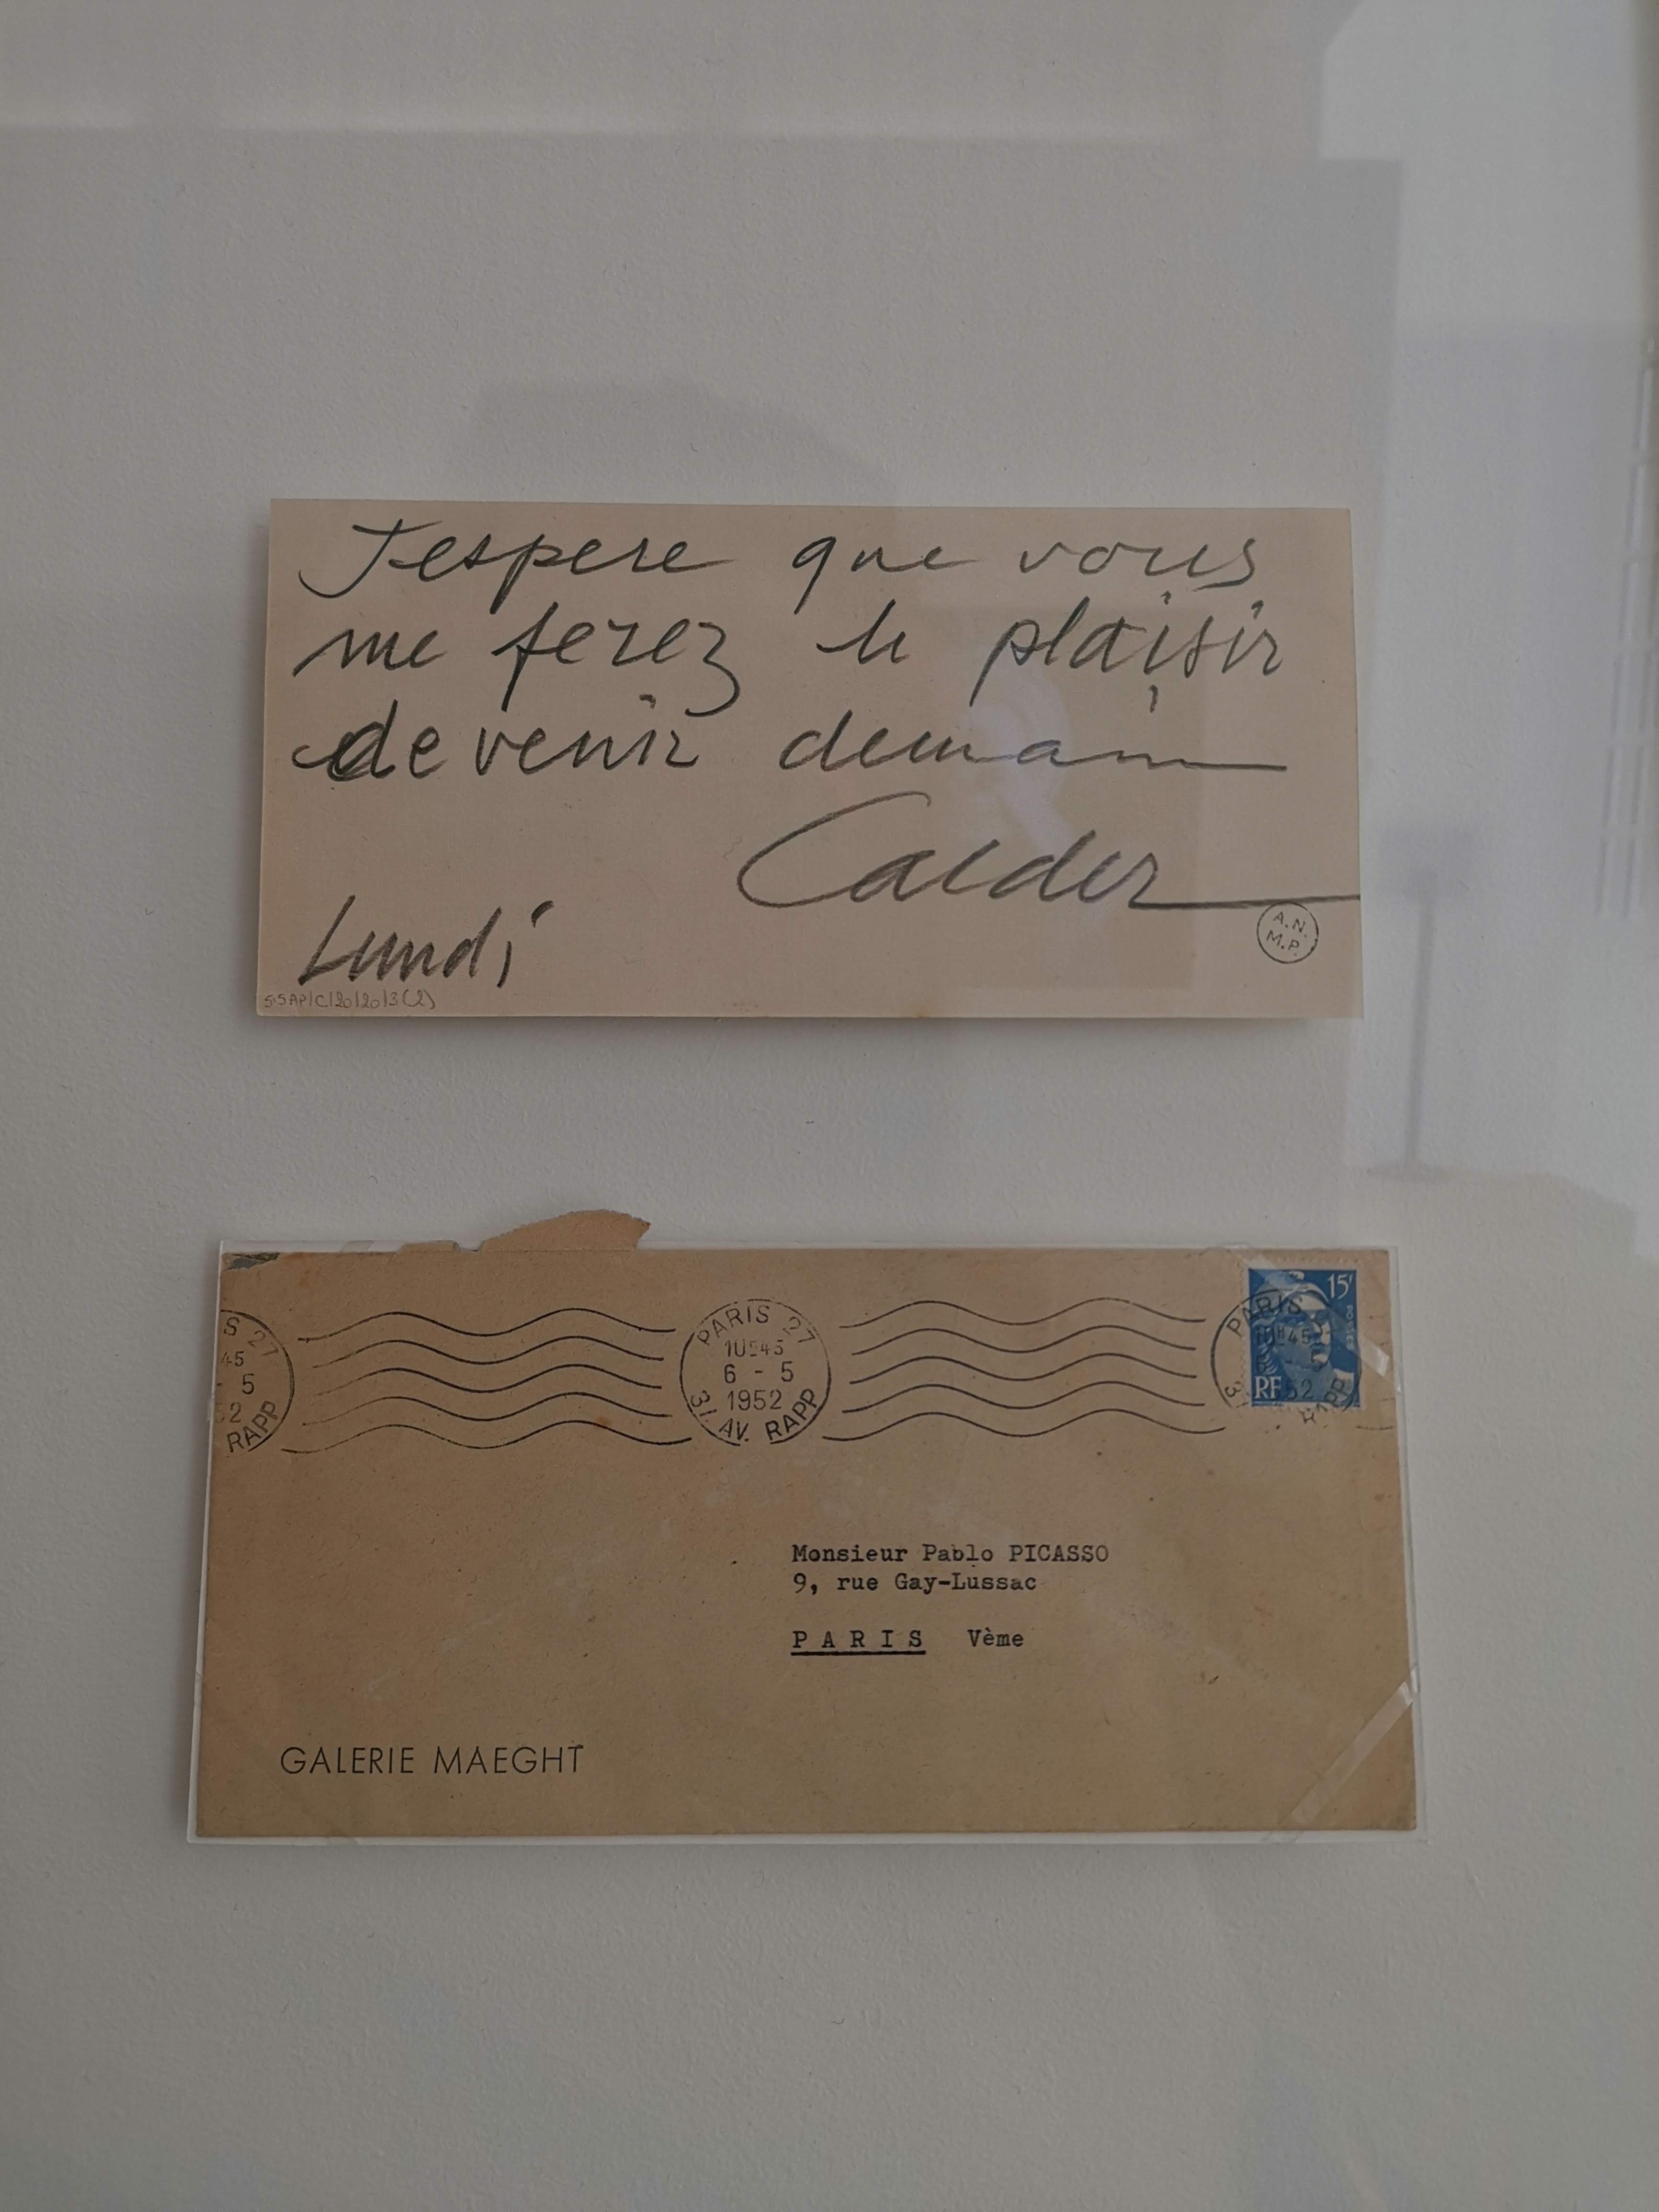 J'espere que vous
me ferez le plaisir
de venir demain
Calder
Lundi
A.N.
M.P.
S 27
45
5
52
RAPP
PARIS 27
10H45
6 - 5
1952
31 AV. RAPP
PARIS
10H45
15F
POSTES
RF
52
RAPP
Monsieur Pablo PICASSO
9, rue Gay-Lussac
PARIS Vème
GALERIE MAEGHT